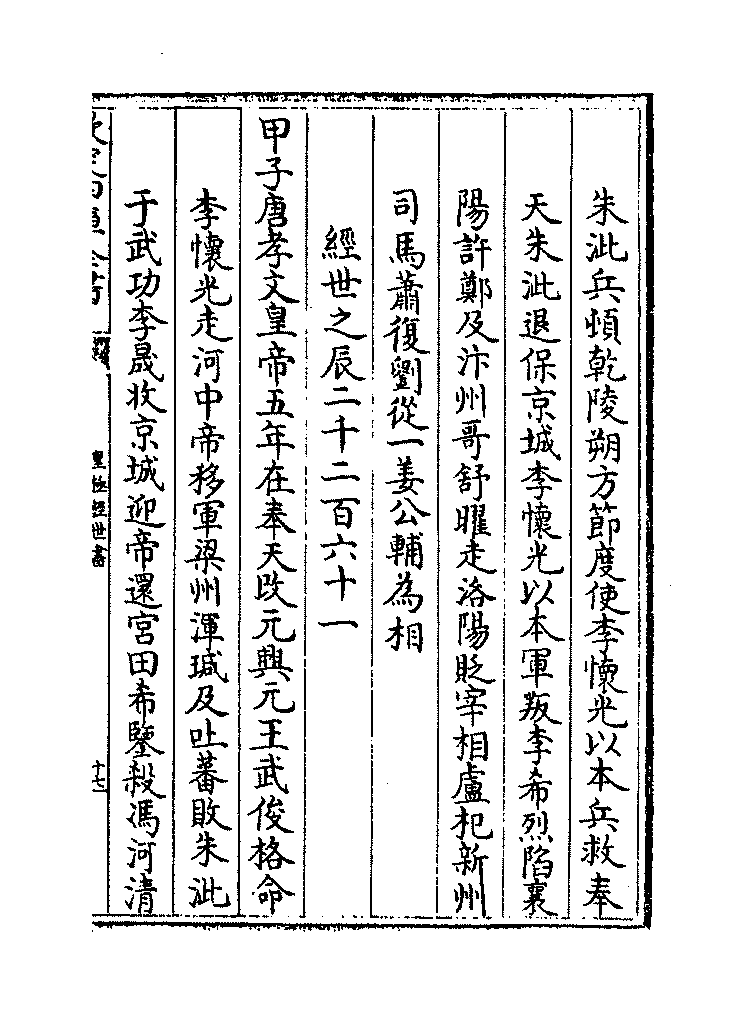 朱泚兵頓乾陵朔方節度使李懷光以本兵救奉
天朱泚退保京城李懷光以本軍叛李希烈陷襄
陽許鄭及汴州哥舒曜走洛陽貶宰相盧杞新州
司馬蕭復劉從一姜公輔為相
經世之辰二千二百六十一
甲子唐孝文皇帝五年在奉天改元興元王武俊格命
李懷光走河中帝移軍梁州渾瑊及吐蕃敗朱泚
于武功李晟收京城迎帝還宮田希鑒殺馮河清
皇極經世書
十七